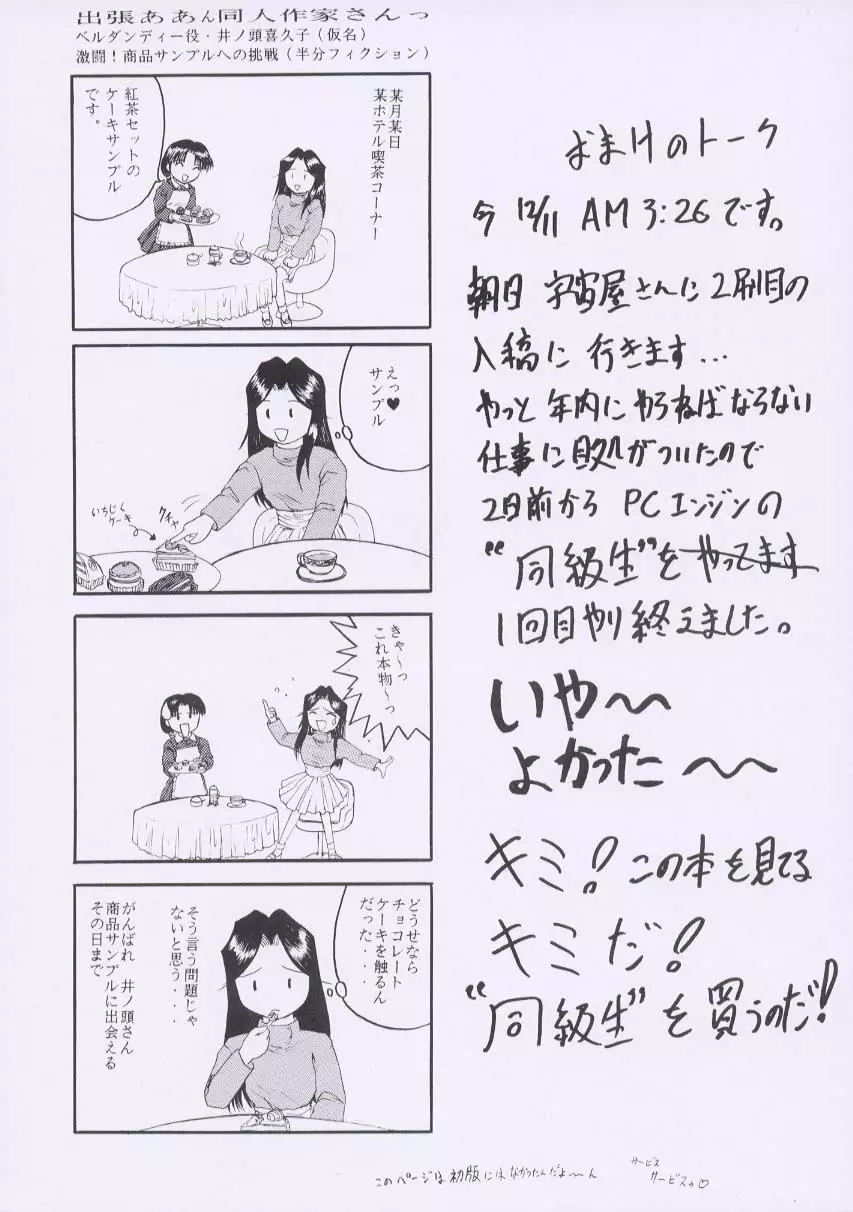 出張ああん同人作家さんっ
ベルダンディー役・井ノ頭喜久子（仮名）
激闘！商品サンプルへの挑戦（半分フィクション）
某月某日
某ホテル喫茶コーナー
紅茶セットの
ケーキサンプル
です。
えっ♥
サンプル
クチャ
いちじく
ケーキ
きゃ〜っ
これ本物〜っ
どうせなら
チョコレート
ケーキを触るん
だった・・
そう言う問題じゃ
ないと思う・・・
がんばれ　井ノ頭さん
商品サンプルに出会える
その日まで
おまけのトーク
今 12/11 AM 3:26です。
朝日 宇宙屋さんに2刷目の
入稿に 行きます...
やっと 年内に やらねばならない
仕事に目処がついたので
2日前から PCエンジンの
“同級生”をやってます
1回目やり終えました。
いや〜〜
よかった〜〜
キミ！この本を見てる
キミだ！
“同級生”を買うのだ！
このページは初版にはなかったんだよ〜ん
サービス
サービスっ♡